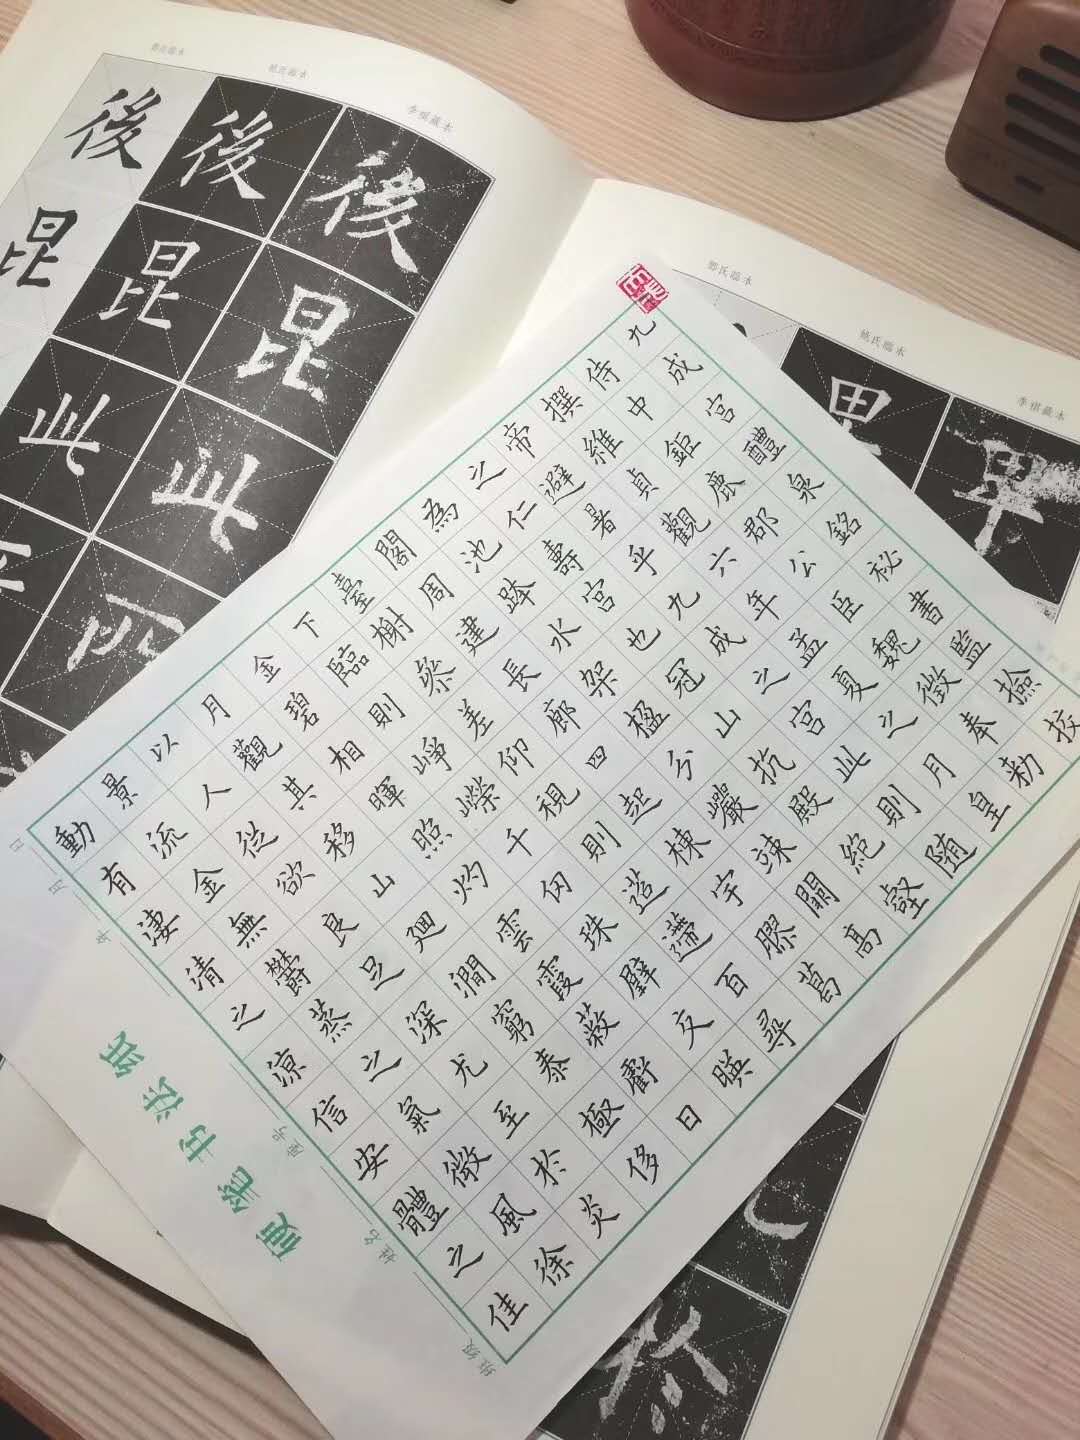 姚氏临本
李祺藏本
後
昆
此
後
昆
此
後
昆
姚氏临本
李祺藏本
九成宮醴泉銘秘書監撿挍
侍中鉅鹿郡公臣魏徵奉勑
撰維貞觀六年孟夏之月皇
帝避暑乎九成之宮此則隨
之仁壽宮也冠山抗殿絕壑
為池跨水架楹分巖竦闕高
閣周建長廊四起棟宇膠葛
臺榭參差仰視則迢遰百尋
下臨則崢嶸千仞珠璧交暎
金碧相暉照灼雲霞蔽虧日
月觀其移山廻澗窮泰極侈
以人從欲良足深尤至於炎
景流金無鬱蒸之氣微風徐
動有淒清之涼信安體之佳
硬笔书法纸
班级
姓名
座号
年 月 日